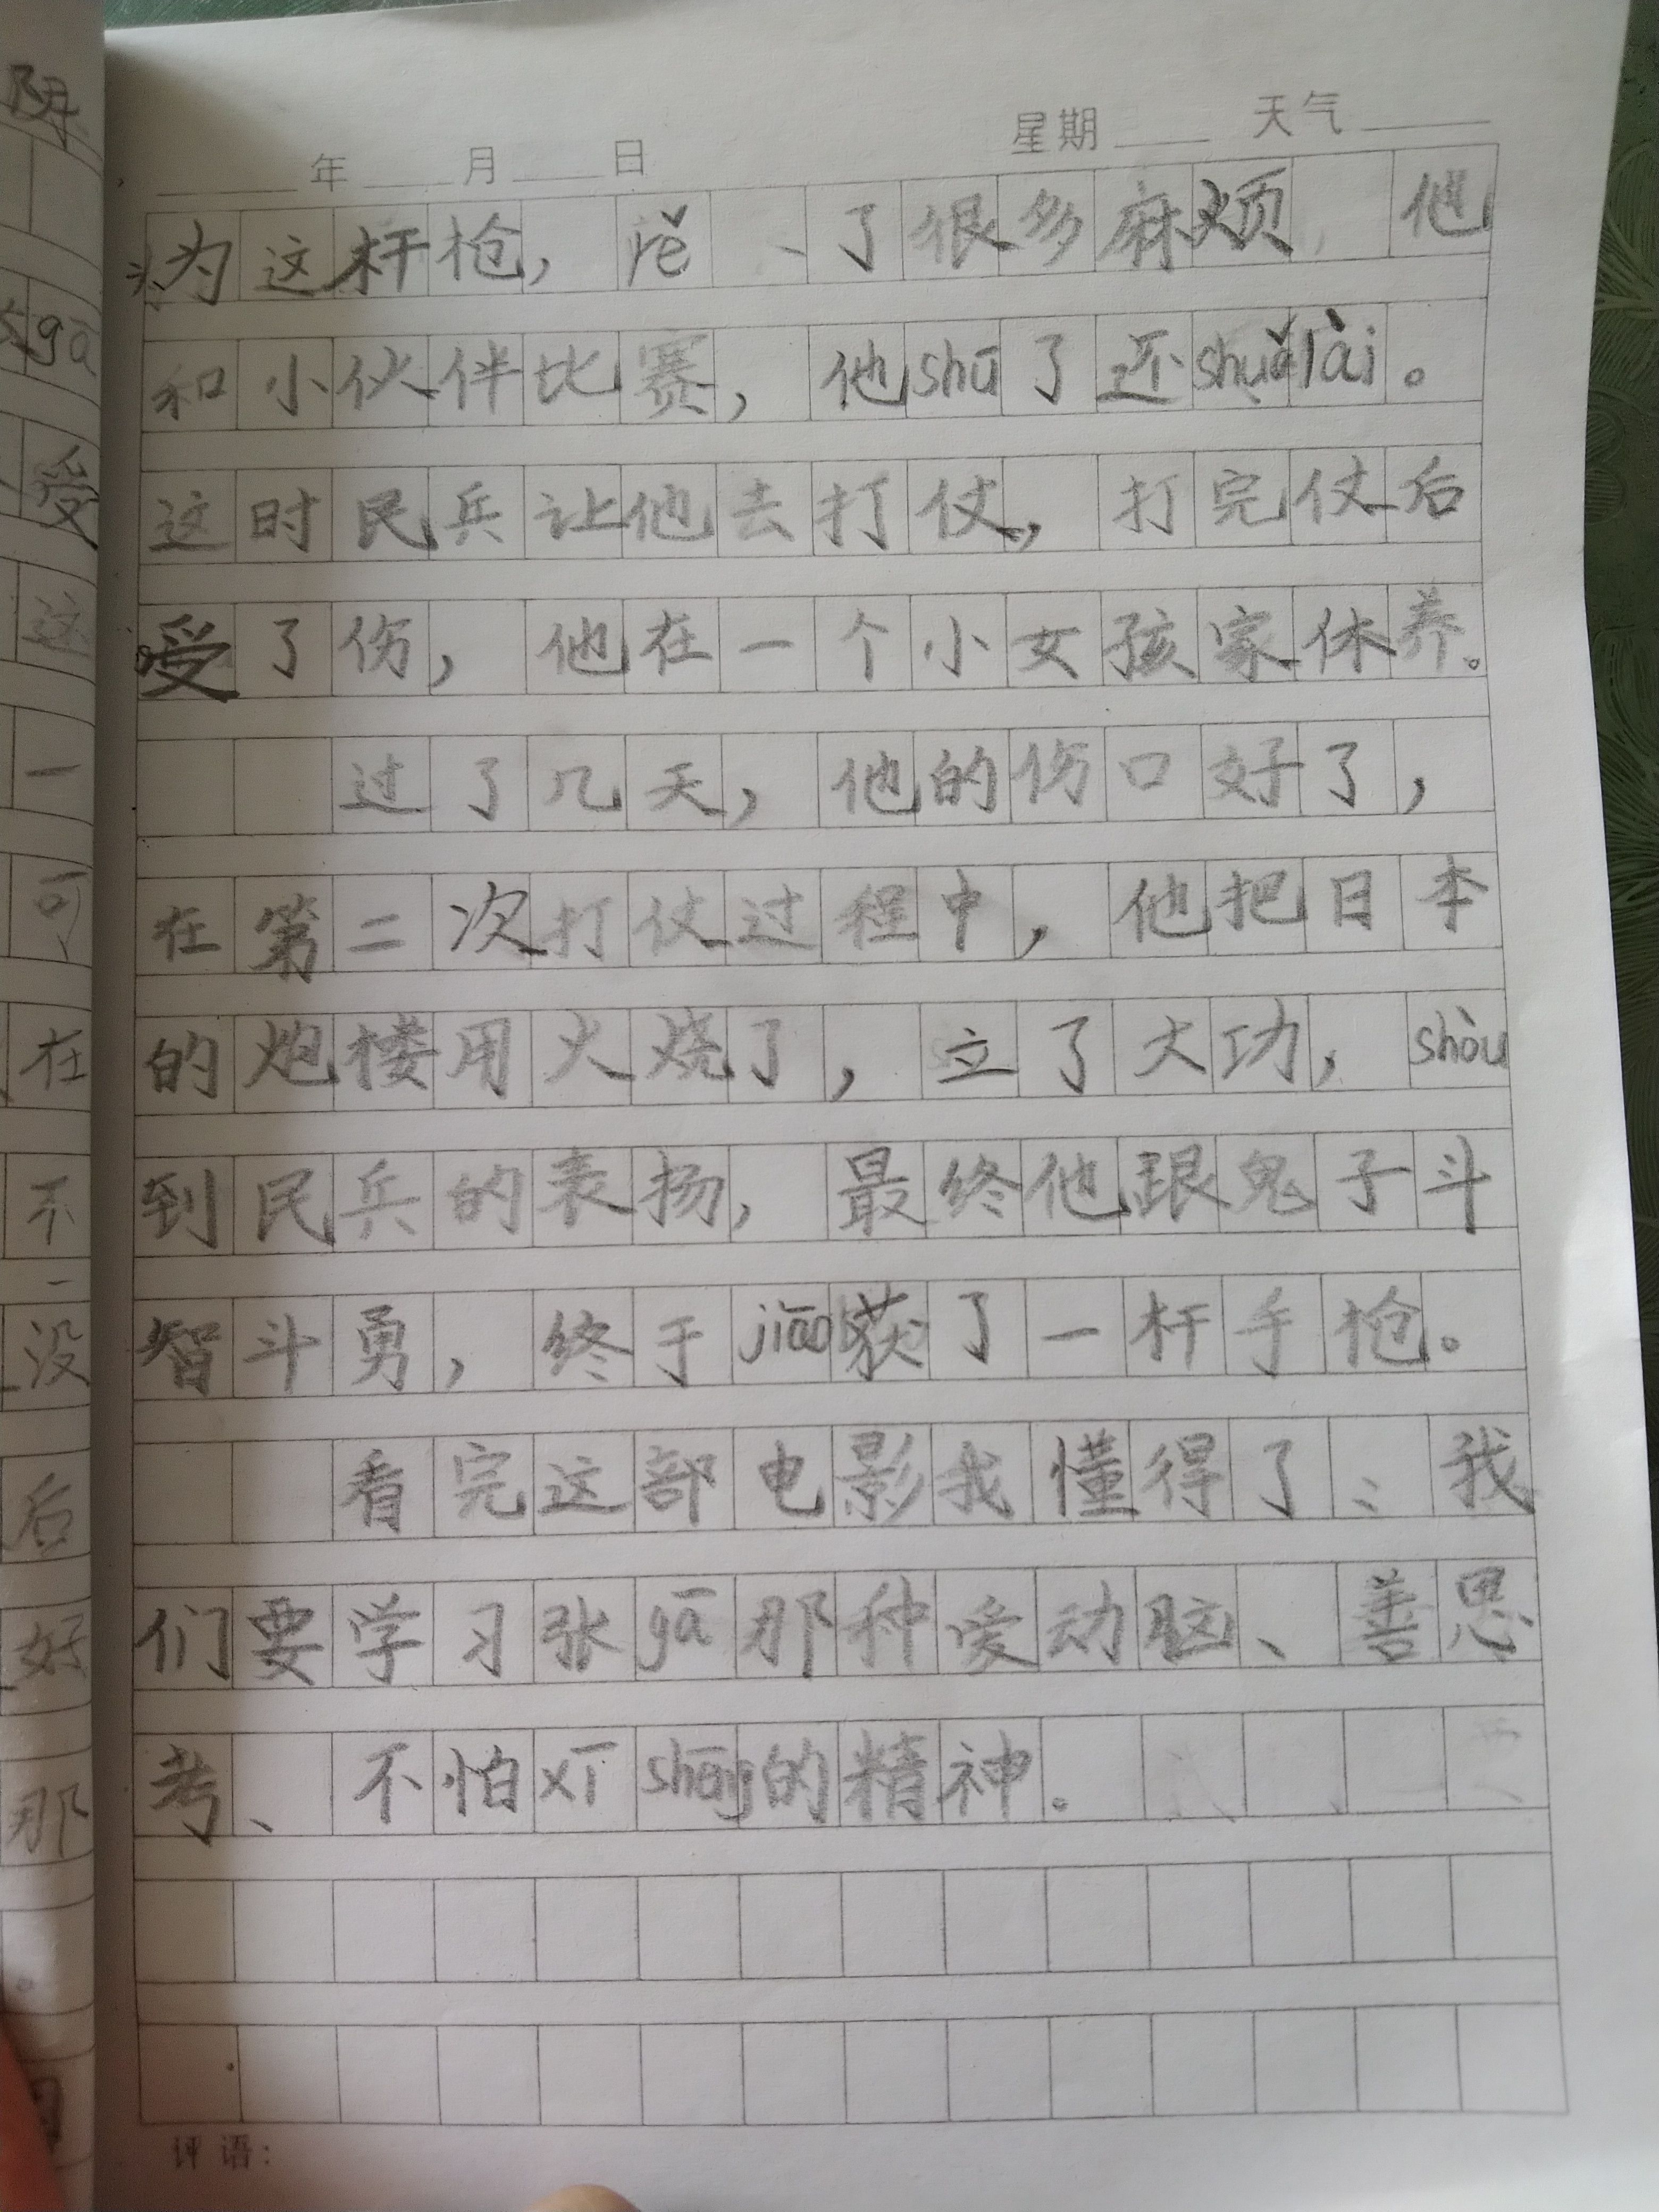 年 月 日 星期 天气
为这杆枪，rě了很多麻烦 他
和小伙伴比赛，他shū了还shuǎlài。
这时民兵让他去打仗，打完仗后
受了伤，他在一个小女孩家休养。
过了几天，他的伤口好了，
在第二次打仗过程中，他把日本
的炮楼用火烧了，立了大功，shòu
到民兵的表扬，最终他跟鬼子斗
智斗勇，终于jiǎo获了一杆手枪。
看完这部电影我懂得了：我
们要学习张gā那种爱动脑、善思
考、不怕xī shēng的精神。
评语：
阴
gā
受
这
一
可
在
不
没
后
好
那